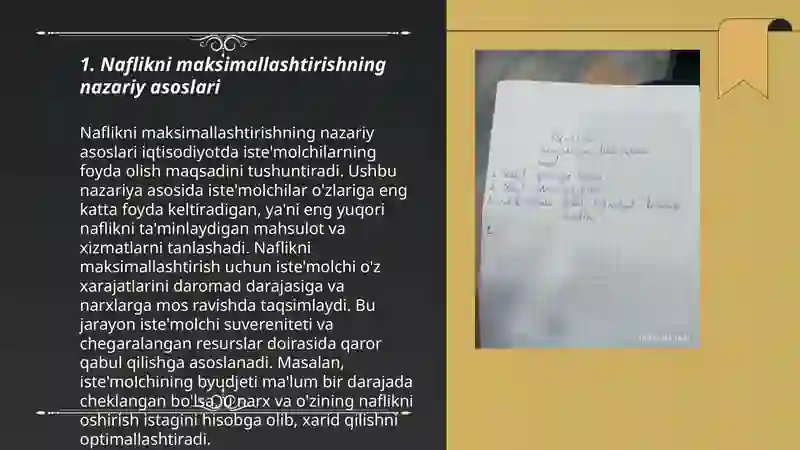 1. Naflikni maksimallashtirishning
nazariy asoslari
Naflikni maksimallashtirishning nazariy
asoslari iqtisodiyotda iste'molchilarning
foyda olish maqsadini tushuntiradi. Ushbu
nazariya asosida iste'molchilar o'zlariga eng
katta foyda keltiradigan, ya'ni eng yuqori
naflikni ta'minlaydigan mahsulot va
xizmatlarni tanlashadi. Naflikni
maksimallashtirish uchun iste'molchi o'z
xarajatlarini daromad darajasiga va
narxlarga mos ravishda taqsimlaydi. Bu
jarayon iste'molchi suvereniteti va
chegaralangan resurslar doirasida qaror
qabul qilishga asoslanadi. Masalan,
iste'molchining byudjeti ma'lum bir darajada
cheklangan bo'lsa, u narx va o'zining naflikni
oshirish istagini hisobga olib, xarid qilishni
optimallashtiradi.